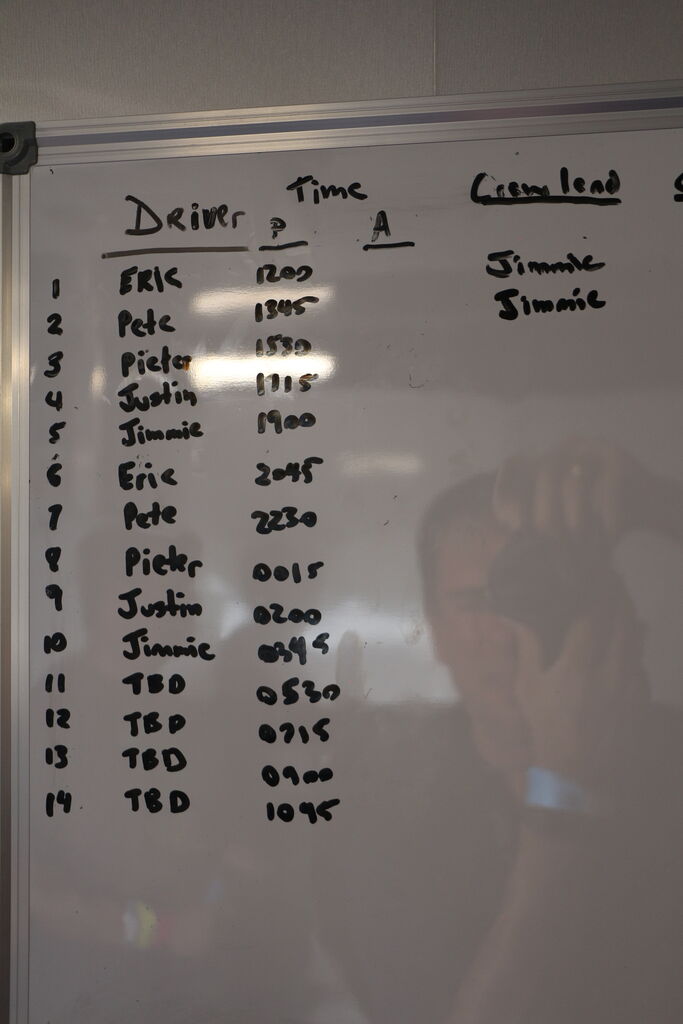 Time Crew lead
Driver P A
1 ERIC 1200 Jimmie
2 Pete 1345 Jimmie
3 Pieter 1530
4 Justin 1715
5 Jimmie 1900
6 Eric 2045
7 Pete 2230
8 Pieter 0015
9 Justin 0200
10 Jimmie 0345
11 TBD 0530
12 TBD 0715
13 TBD 0900
14 TBD 1045